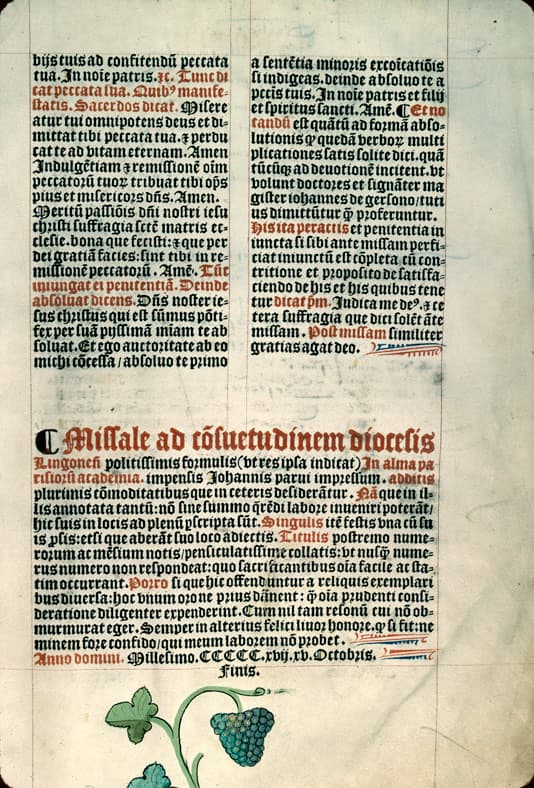 bijs tuis ad confitendū peccata
tua. In noīe patris. ꝛc. Tunc di
cat peccata sua. Quibꝰ manife-
statis. Sacerdos dicat. Misere
atur tui omnipotens deus et di-
mittat tibi peccata tua. ⁊ perdu
cat te ad vitam eternam. Amen
Indulgētiam ⁊ remissionē oīm
peccatorū tuoꝝ tribuat tibi oṗs
pius et misericors dn̄s. Amen.
Meritū passiōis dn̄i nostri iesu
christi suffragia sctē matris ec-
clesie. bona que fecisti: ⁊ que per
dei gratiā facies: sint tibi in re-
missionē peccatorū. Amē. Tūc
iniungat ei penitentiā. Deinde
absoluat dicens. Dn̄s noster ie-
sus christus qui est sūmus pōti-
fex per suā pijssimā miam te ab
soluat. Et ego auctoritate ab eo
michi cōcessa / absoluo te primo
a sentētia minoris excoīcatiōis
si indigeas. deinde absoluo te a
pctīs tuis. In noīe patris et filij
et spiritus sancti. Amē. ¶ Et no
tandū est quātū ad formā abso-
lutionis ꝙ quedā verboꝝ multi
plicationes satis solite dici. quā
tūcūqꝫ ad deuotionē incitent. vt
volunt doctores et signāter ma
gister iohannes de gersono / tuti
us dimittūtur ꝙ̄ proferuntur.
His ita peractis et penitentia in
iuncta si sibi ante missam perfi-
ciat iniunctū est cōpleta cū con-
tritione et proposito de satisfa-
ciendo de his et his quibus tene
tur dicat p̄m. Iudica me deꝰ. ⁊ ce
tera suffragia que dici solēt āte
missam. Post missam similiter
gratias agat deo.
¶ Missale ad cōsuetudinem diocesis
Lingoneñ politissimis formulis (vt res ipsa indicat) In alma pa
risiorū academia. impensis Iohannis parui impressum. additis
plurimis cōmoditatibus que in ceteris desiderātur. Nā que in il-
lis annotata tantū: nō sine summo q̄redi labore inueniri poterāt /
hic suis in locis ad plenū ꝑscripta sūt. Singulis itē festis vna cū su
is ꝑsis: etsi que aberāt suo loco adiectis. Titulis postremo nume-
rorum ac mēsium notis / pensiculatissime collatis: vt nusꝗ̄ nume-
rus numero non respondeat: quo sacrificantibus oīa facile ac sta-
tim occurrant. Porro si que hic offenduntur a reliquis exemplari
bus diuersa: hoc vnum oro ne prius dānent: ꝙ̄ oīa prudenti consi-
deratione diligenter expenderint. Cum nil tam resonū cui nō ob-
murmurat eger. Semper in alterius felici liuor honore. ꝙ si fit: ne
minem fore confido / qui meum laborem nō probet.
Anno domini. Millesimo. CCCCC. xvij. xv. Octobris.
Finis.